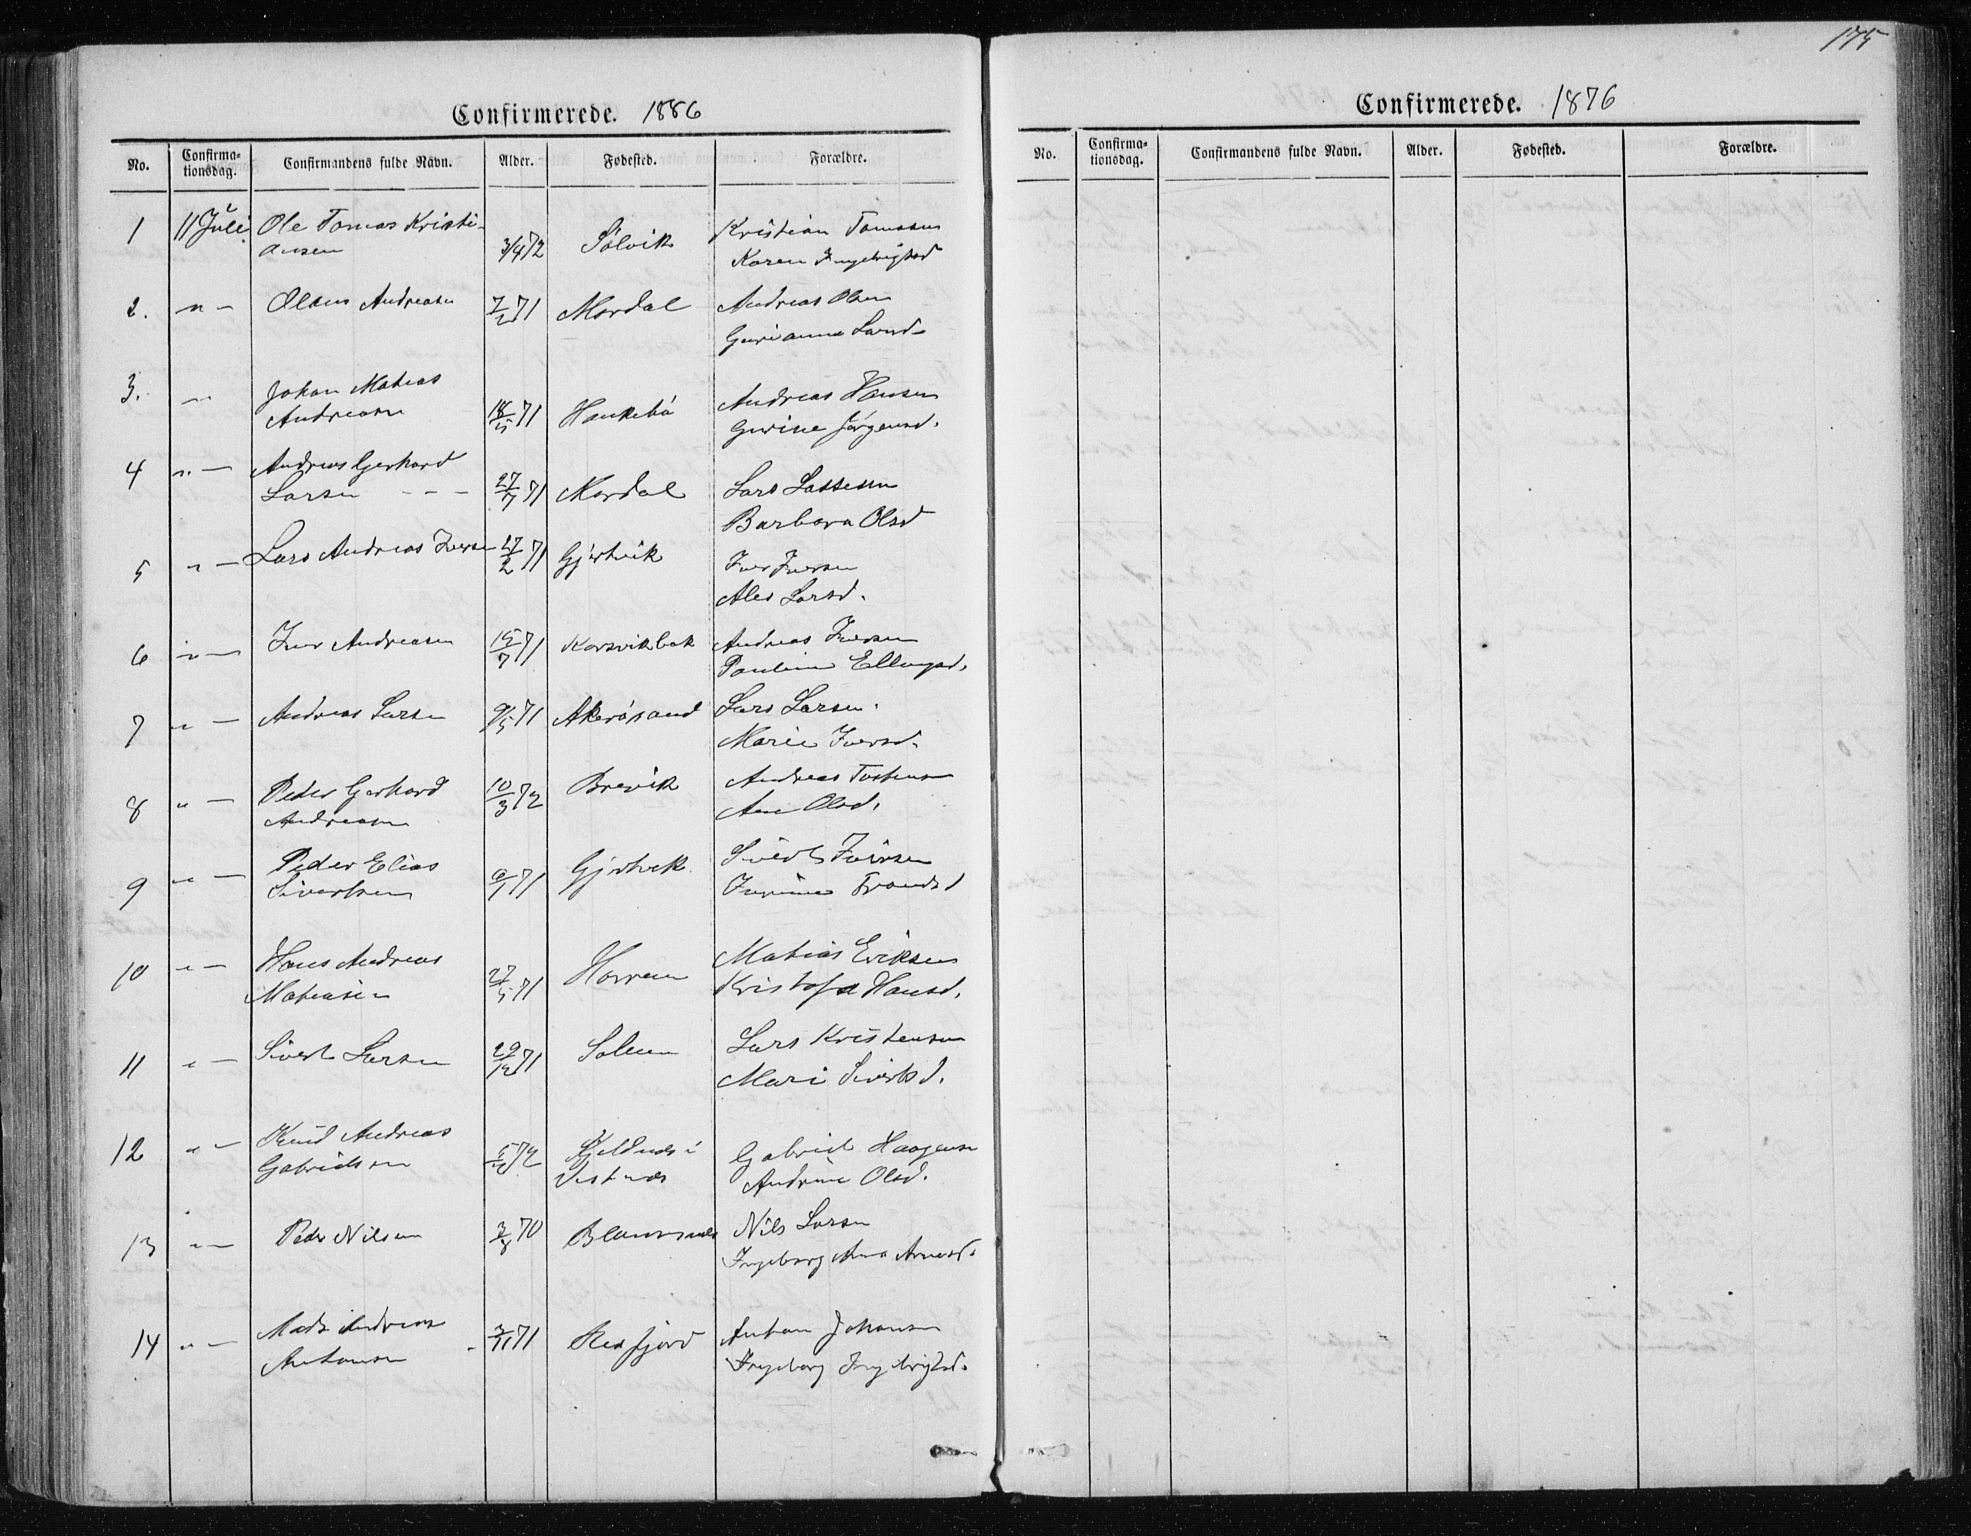 175
Confirmerede. 1886
No. Confirma-tionsdag. Confirmandens fulde Navn. Alder. Fødested. Forældre.
1 11 Juli Ole Tomas Kristi-
ansen 3/4 72 Sølvik Kristian Tomassen
Karen Ingebrigtsd
2. " — Olaus Andreasen 7/2 71 Mordal Andreas Olsen
Gurianna Larsd.
3. " Johan Matias
Andreasen 18/5 71 Haukebø Andreas Hansen
Gurine Jørgensd.
4 " — Andreas Gerhard
Larsen - - - 27/7 71 Mordal Lars Lassesen
Barbara Olsd
5 " — Lars Andreas Iversen 27/2 71 Gjertvik Iver Iversen
Ales Larsd.
6 " — Iver Andreasen 15/7 71 Korsvikbak Andreas Iversen
Pauline Ellingsd.
7 " — Andreas Larsen 9/5 71 Akerøsand Lars Larsen.
Marie Iversd.
8 " — Peder Gerhard
Andreasen 10/3 72 Brevik Andreas Tostensen
Ane Olsd.
9 " — Peder Elias
Sivertsen 6/1 71 Gjertvik Sivert Iversen
Iverine Trondsd
10 " — Hans Andreas
Matiasen 27/5 71 Horrem Matias Eriksen
Kristofa Hansd.
11 " — Sivert Larsen 29/12 71 Solem Lars Kristensen
Mari Sivertsd.
12 " — Knud Andreas
Gabrielsen 72 i
Vestnes Gabriel Haagensen
Andrine Olsd.
13 " — Peder Nilsen 3/8 70 Nils Larsen
Ingeborg Ana Arnesd.
14 " — Mads Andreas
Antonsen 3/11 71 Anton Johansen
Ingeborg Ingebrigtsd.
Confirmerede. 1876
No. Confirma-tionsdag. Confirmandens fulde Navn. Alder. Fødested. Forældre.